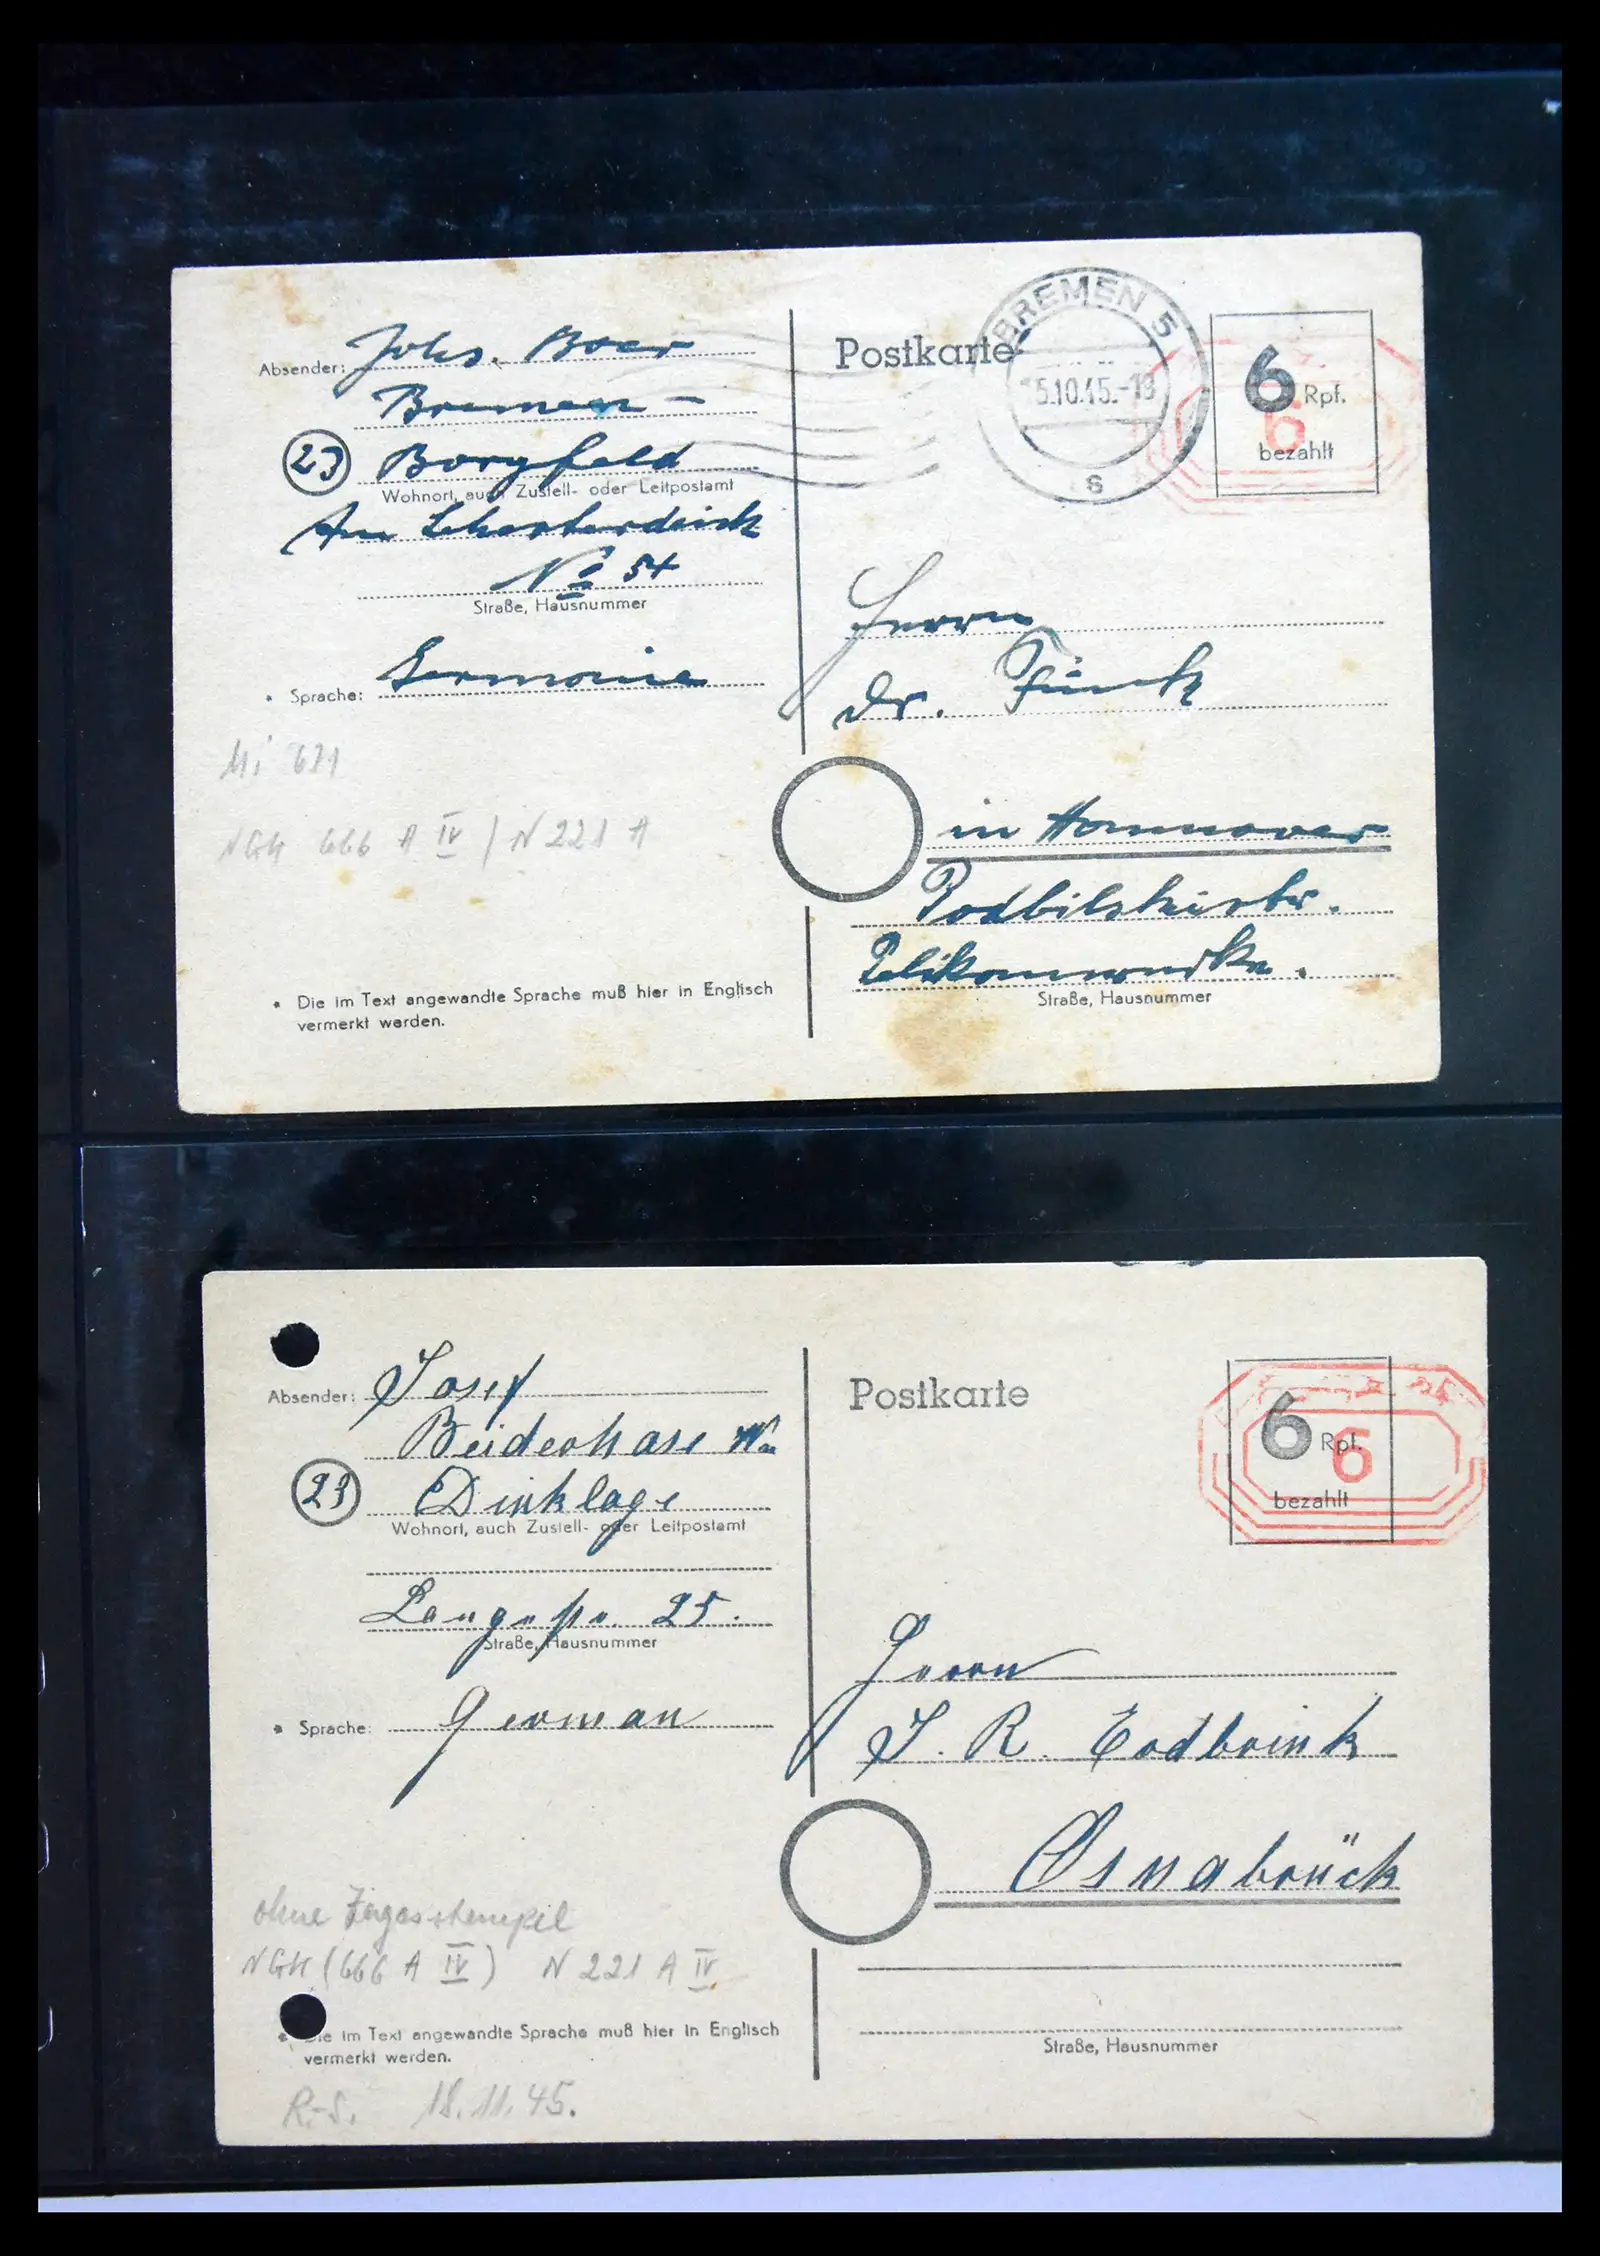 Absender: Johs. Boer
Bremen -
23 Borgfeld
Wohnort, auch Zustell- oder Leitpostamt
Am Lehesterdeich
No 54
Straße, Hausnummer
* Sprache: Germanie
Mi 671
NGK 666 A IV / N 221 A
* Die im Text angewandte Sprache muß hier in Englisch
vermerkt werden.
Postkarte
BREMEN 5
5.10.45.-19
s
6 Rpf.
6
bezahlt
Herrn
Dr. Fünck
in Hannover
Podbilskistr.
Pelikanwerke.
Straße, Hausnummer
Absender: Josef
Beiderhase Ww
23 Dinklage
Wohnort, auch Zustell- oder Leitpostamt
Langestr. 25.
Straße, Hausnummer
* Sprache: German
ohne Tagesstempel
NGK (666 A IV) N 221 A IV
* Die im Text angewandte Sprache muß hier in Englisch
vermerkt werden.
R.-S. 18.11.45.
Postkarte
6 Rpf.
6
bezahlt
Herrn
J. R. Erdbrink
Osnabrück
Straße, Hausnummer